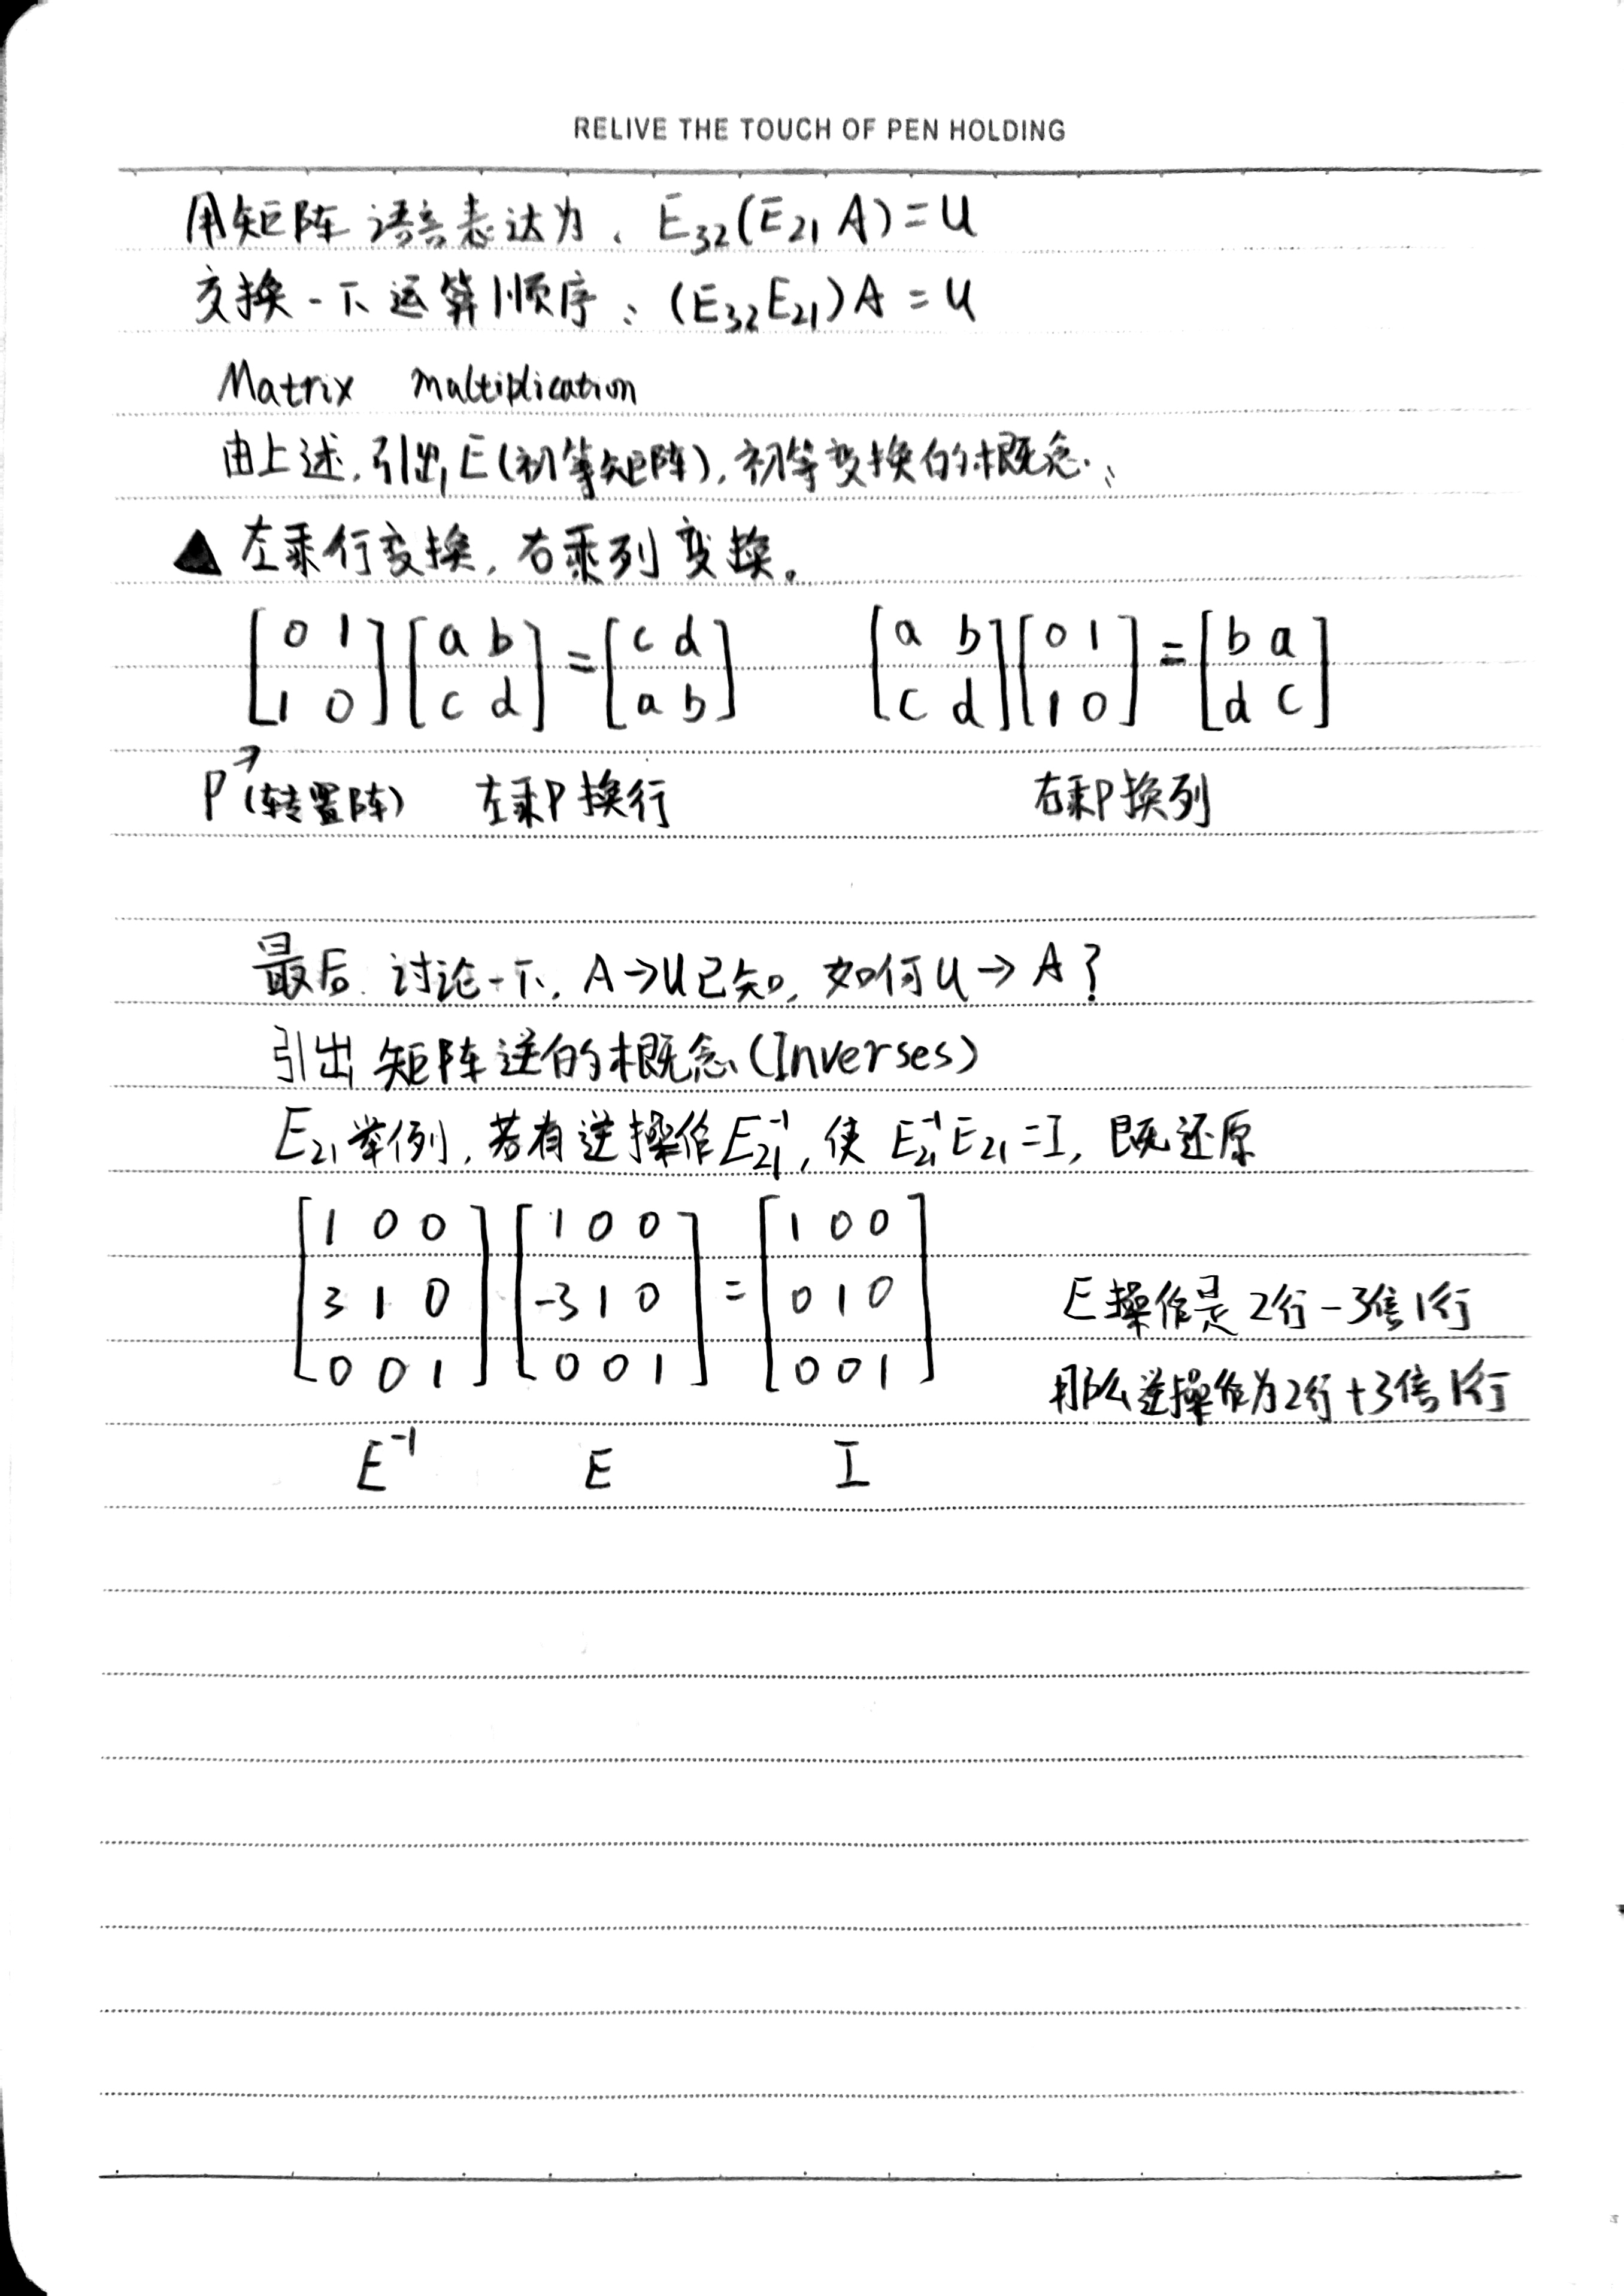 RELIVE THE TOUCH OF PEN HOLDING
用矩阵语言表达为、E₃₂(E₂₁ A) = U
交换一下运算顺序、(E₃₂E₂₁)A = U
Matrix multiplication
由上述,引出E(初等矩阵),初等变换的概念、
▲ 左乘行变换,右乘列变换。
[0 1; 1 0] [a b; c d] = [c d; a b]  [a b; c d] [0 1; 1 0] = [b a; d c]
P↗(转置阵) 左乘P换行 右乘P换列
最后.讨论一下,A→U已知,如何U→A?
引出矩阵逆的概念(Inverses)
E₂₁举例,若有逆操作E₂₁⁻¹,使E₂₁⁻¹E₂₁=I,既还原
[1 0 0; 3 1 0; 0 0 1] [1 0 0; -3 1 0; 0 0 1] = [1 0 0; 0 1 0; 0 0 1]
E操作是2行-3倍1行
那么逆操作为2行+3倍1行
E⁻¹ E I